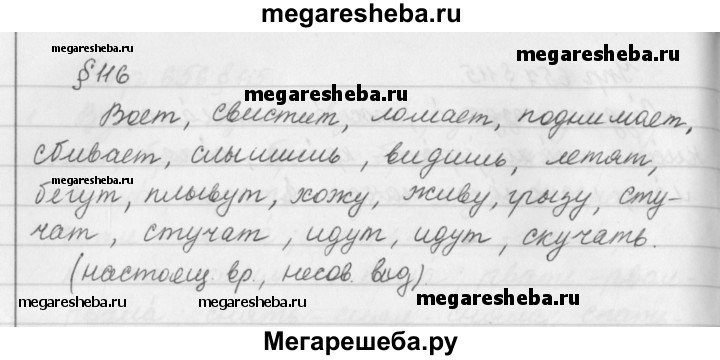 megaresheba.ru
§116
megaresheba.ru
megaresheba.ru
Воет, свистит, ломает, поднимает,
сбивает, слышишь, видишь, летят,
megaresheba.ru
бегут, плывут, хожу, живу, грызу, сту-
чат, стучат, идут, идут, скучать.
(настоящ. вр., несов. вид).
megaresheba.ru
megaresheba.ru
megaresheba.ru
Мегарешеба.ру